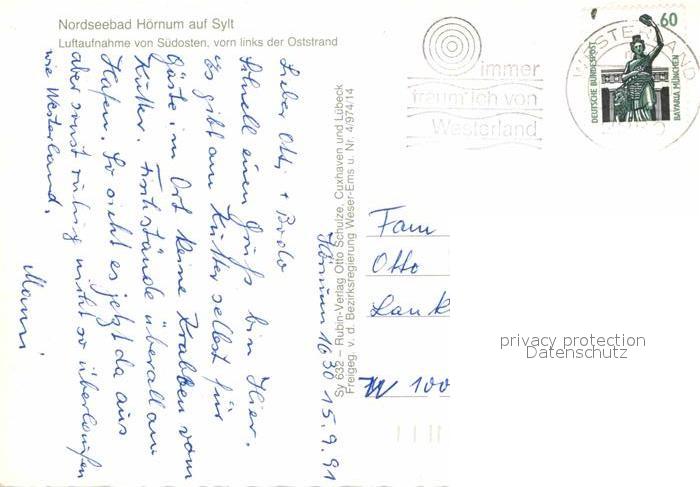 Nordseebad Hörnum auf Sylt
Luftaufnahme von Südosten, vorn links der Oststrand
Hörnum 16 30 15.9.91
Lieber Otti + Bodo
Schnell einen Gruß bin Hier.
Es gibt am Kutter selbst für
Gäste im Ort keine Krabben vom
Kutter. Fischstände überall am
Hafen. So sieht es jetzt da aus
aber sonst ruhig nicht so überlaufen
wie Westerland.
Manni
Sy 632 – Rubin-Verlag Otto Schulze, Cuxhaven und Lübeck
Freigeg. v. d. Bezirksregierung Weser-Ems u. Nr. 4/974/14
immer
träum' ich von
Westerland
WESTERLAND
60
DEUTSCHE BUNDESPOST
BAVARIA MÜNCHEN
Fam
Otto
Lank
W 100
privacy protection
Datenschutz